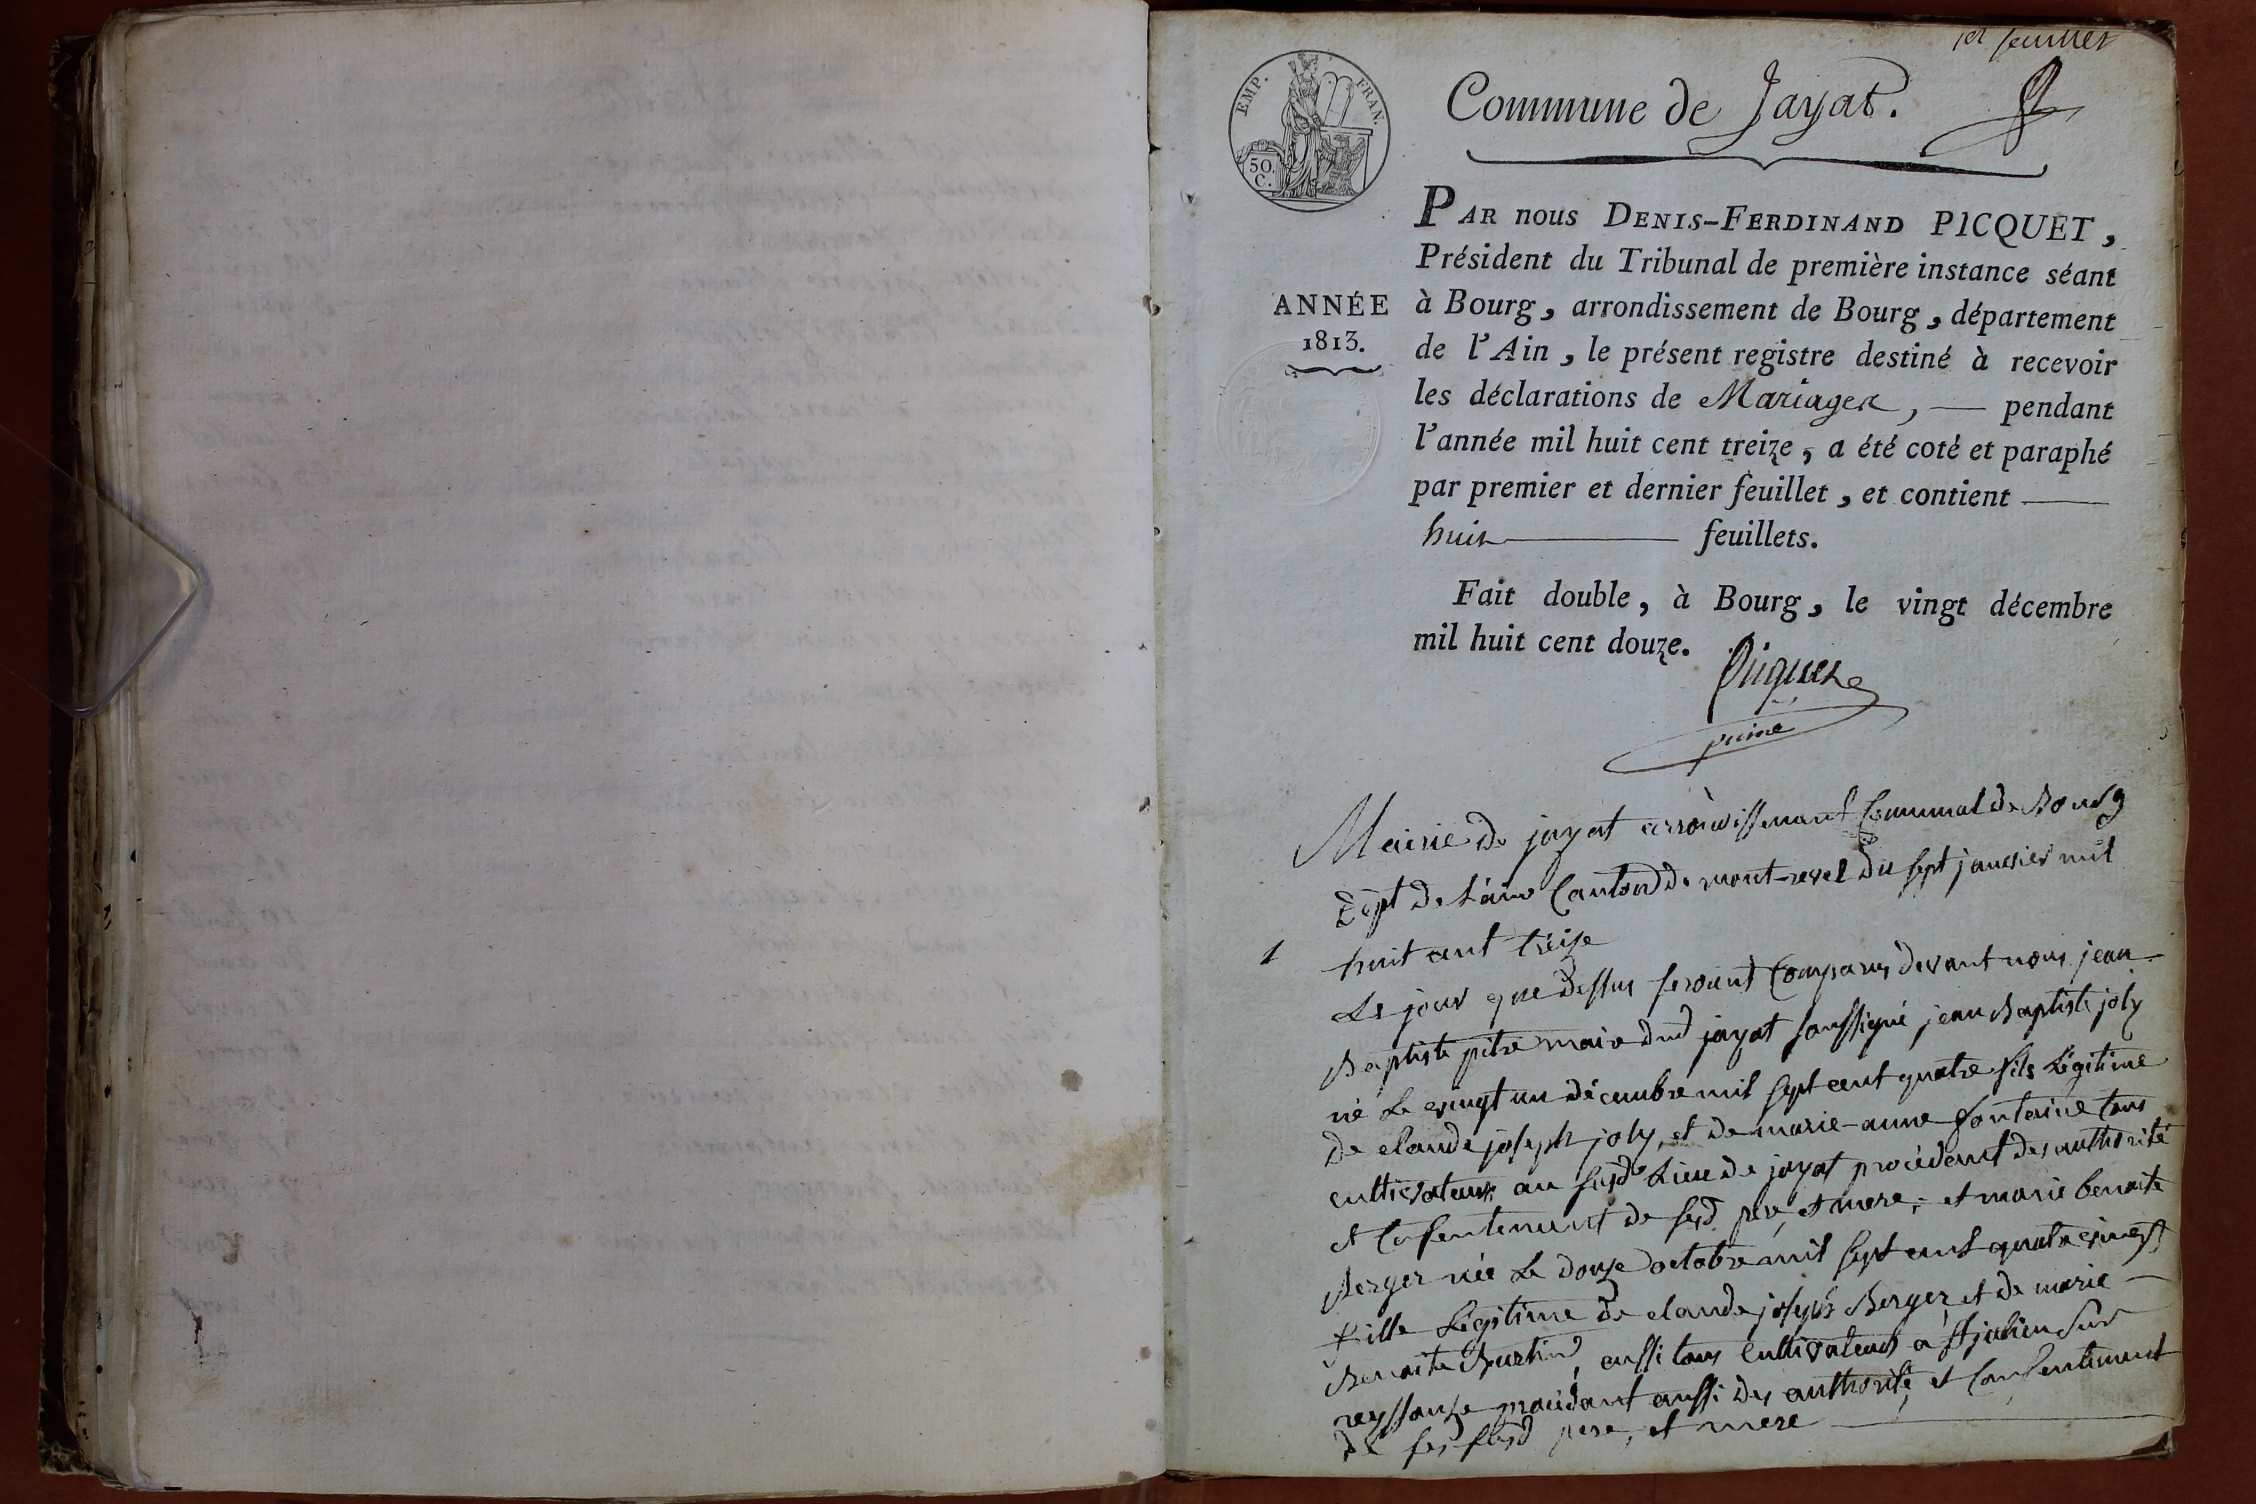 1er feuillet
EMP. FRAN.
50. C.
Commune de Jayat.
PAR nous DENIS-FERDINAND PICQUET,
Président du Tribunal de première instance séant
ANNÉE à Bourg, arrondissement de Bourg, département
1813. de l'Ain, le présent registre destiné à recevoir
les déclarations de Mariages, — pendant
l'année mil huit cent treize, a été coté et paraphé
par premier et dernier feuillet, et contient —
huit — feuillets.
Fait double, à Bourg, le vingt décembre
mil huit cent douze.
Picquet
Mairie de jayat arrondissement Communal de Bourg
Dépt de l'ain Canton de mont-revel Du sept janvier mil
1 huit cent treize
Le jour que dessus seroient Comparus devant nous jean
Baptiste pitre maire dud jayat soussigné jean Baptiste joly
né Le vingt un décembre mil sept cent quatre fils Légitime
de claude joseph joly, et de marie-anne fontaine tous
cultivateurs au susd Lieu de jayat procédant des authorité
et Consentement de sesd père et mere; et marie benoite
Berger née Le douze octobre mil sept cent quatre vingt
fille Légitime de claude joseph Berger et de marie
Benoite Burtin, aussi tous Cultivateurs a St julien sur
reyssouze procédant aussi des authorité, et Consentement
de ses susd pere, et mere